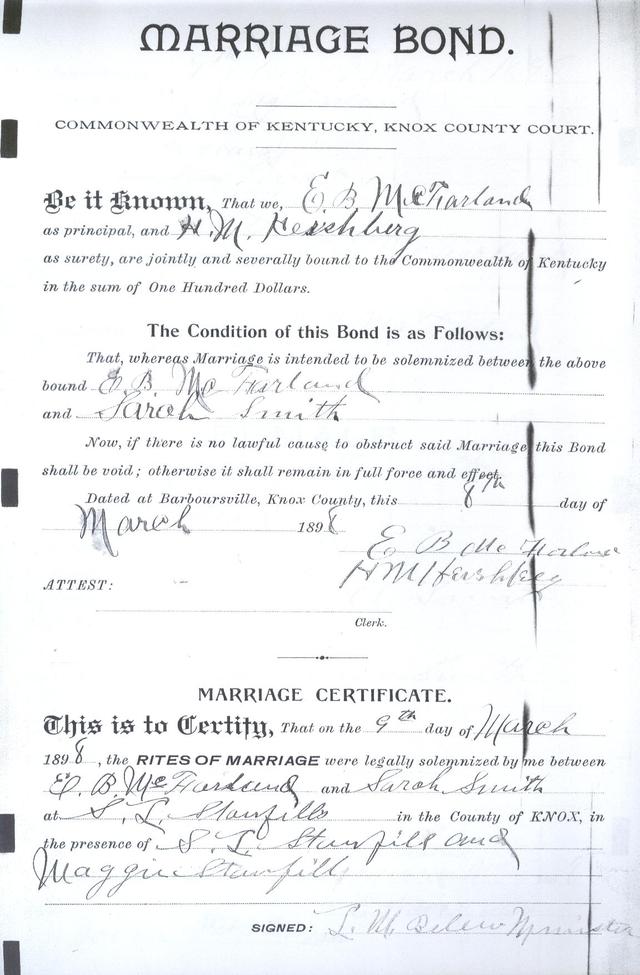 MARRIAGE BOND.
COMMONWEALTH OF KENTUCKY, KNOX COUNTY COURT.
Be it Known, That we, E B McFarland
as principal, and H. M. Hershberg
as surety, are jointly and severally bound to the Commonwealth of Kentucky
in the sum of One Hundred Dollars.
The Condition of this Bond is as Follows:
That, whereas Marriage is intended to be solemnized between the above
bound E. B. McFarland
and Sarah Smith
Now, if there is no lawful cause to obstruct said Marriage this Bond
shall be void; otherwise it shall remain in full force and effect.
Dated at Barboursville, Knox County, this 8th day of
March 1898
E B McFarland
H M Hershberg
ATTEST:
Clerk.
MARRIAGE CERTIFICATE.
This is to Certify, That on the 9th day of March
1898, the RITES OF MARRIAGE were legally solemnized by me between
E. B. McFarland and Sarah Smith
at S. L. Stanfills in the County of KNOX, in
the presence of S. L. Stanfill and
Maggie Stanfill
SIGNED: L. M.